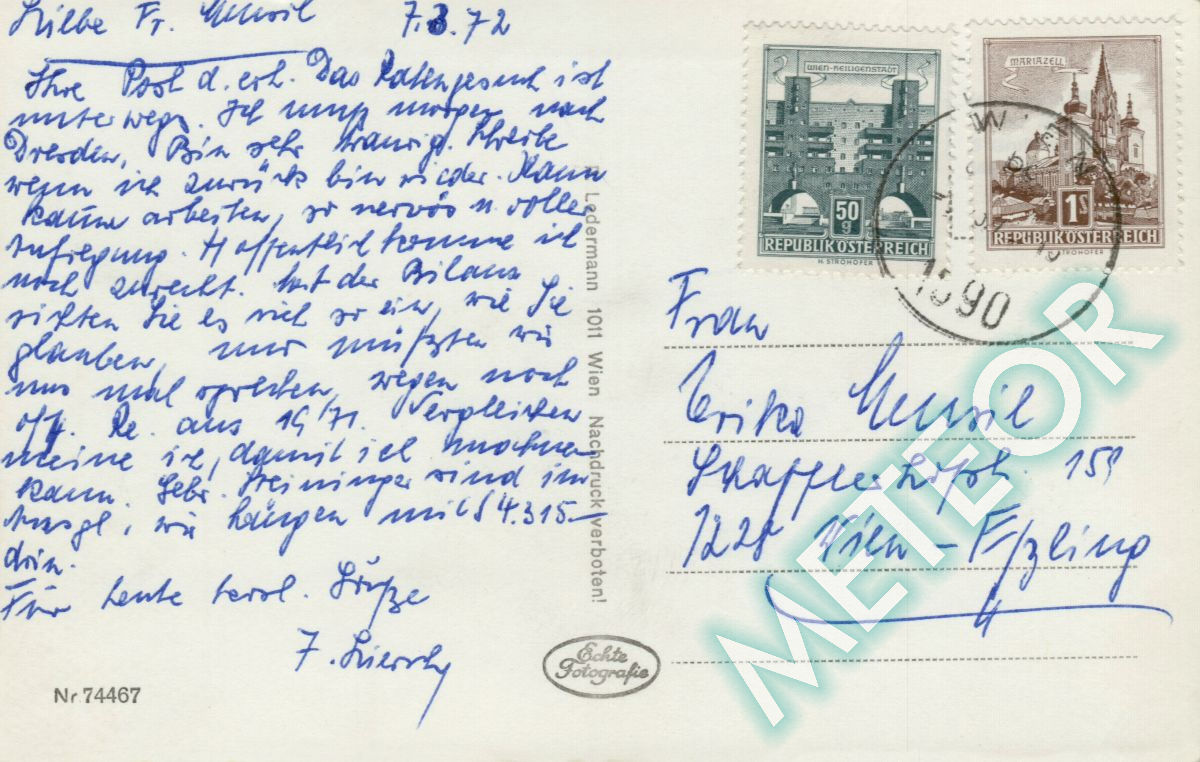 Liebe Fr. Musil 7.3.72
Ihre Post d. erh. Das Ratengesuch ist
unterwegs. Ich muß morgen nach
Dresden, Bin sehr traurig. Schreibe
wenn ich zurück bin wieder. Kann
kaum arbeiten, so nervös u. voller
Aufregung. Hoffentlich komme ich
noch zurecht. Mit der Bilanz
richten Sie es sich so ein, wie Sie
glauben, nur müßten wir
uns mal sprechen, wegen noch
off. Re. aus 1971. Vergleichen
meine ich, damit ich machen
kann. Gebr. Steininger sind im
Ausgl, wir hängen mit S 4.315.—
drin.
Für heute herzl. Grüße
WIEN-HEILIGENSTADT
50
g
REPUBLIK ÖSTERREICH
H. STROHOFER
MARIAZELL
1 S
REPUBLIK ÖSTERREICH
STROHOFER
WIEN
1090
Ledermann 1011 Wien Nachdruck verboten!
Frau
Erika Musil
151
Wien - Eßling
Echte
Fotografie
Nr. 74467
METEOR